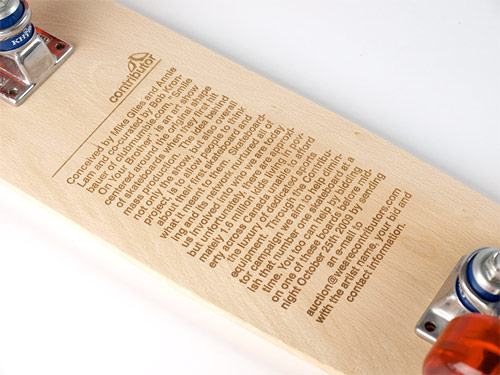 contributor
Conceived by Mike Giles and Annie
Lam and co-curated by Bob Kron-
bauer of clubmumble.com, "Smile
On Your Brother" is an art show
centered around the original shape
of skateboards when they first hit
mass production. The idea behind
not only the show, but also overall
project is to allow people to think
about their first skateboard and
what it meant to them. Skateboard-
ing and its artwork nurtured all of
us involved into who we are today
but unfortunately there are approxi-
mately 1.6 million kids living in pov-
erty across Canada unable to afford
the luxury of dedicated sports
equipment. Through the Contribu-
tor campaign we aim to help dimin-
ish that number one skateboard at a
time. You too can help by bidding
on one of these boards before mid-
night October 25th 2009 by sending
an e-mail to
auction@wearecontributors.com
with the artist name, your bid and
contact information.